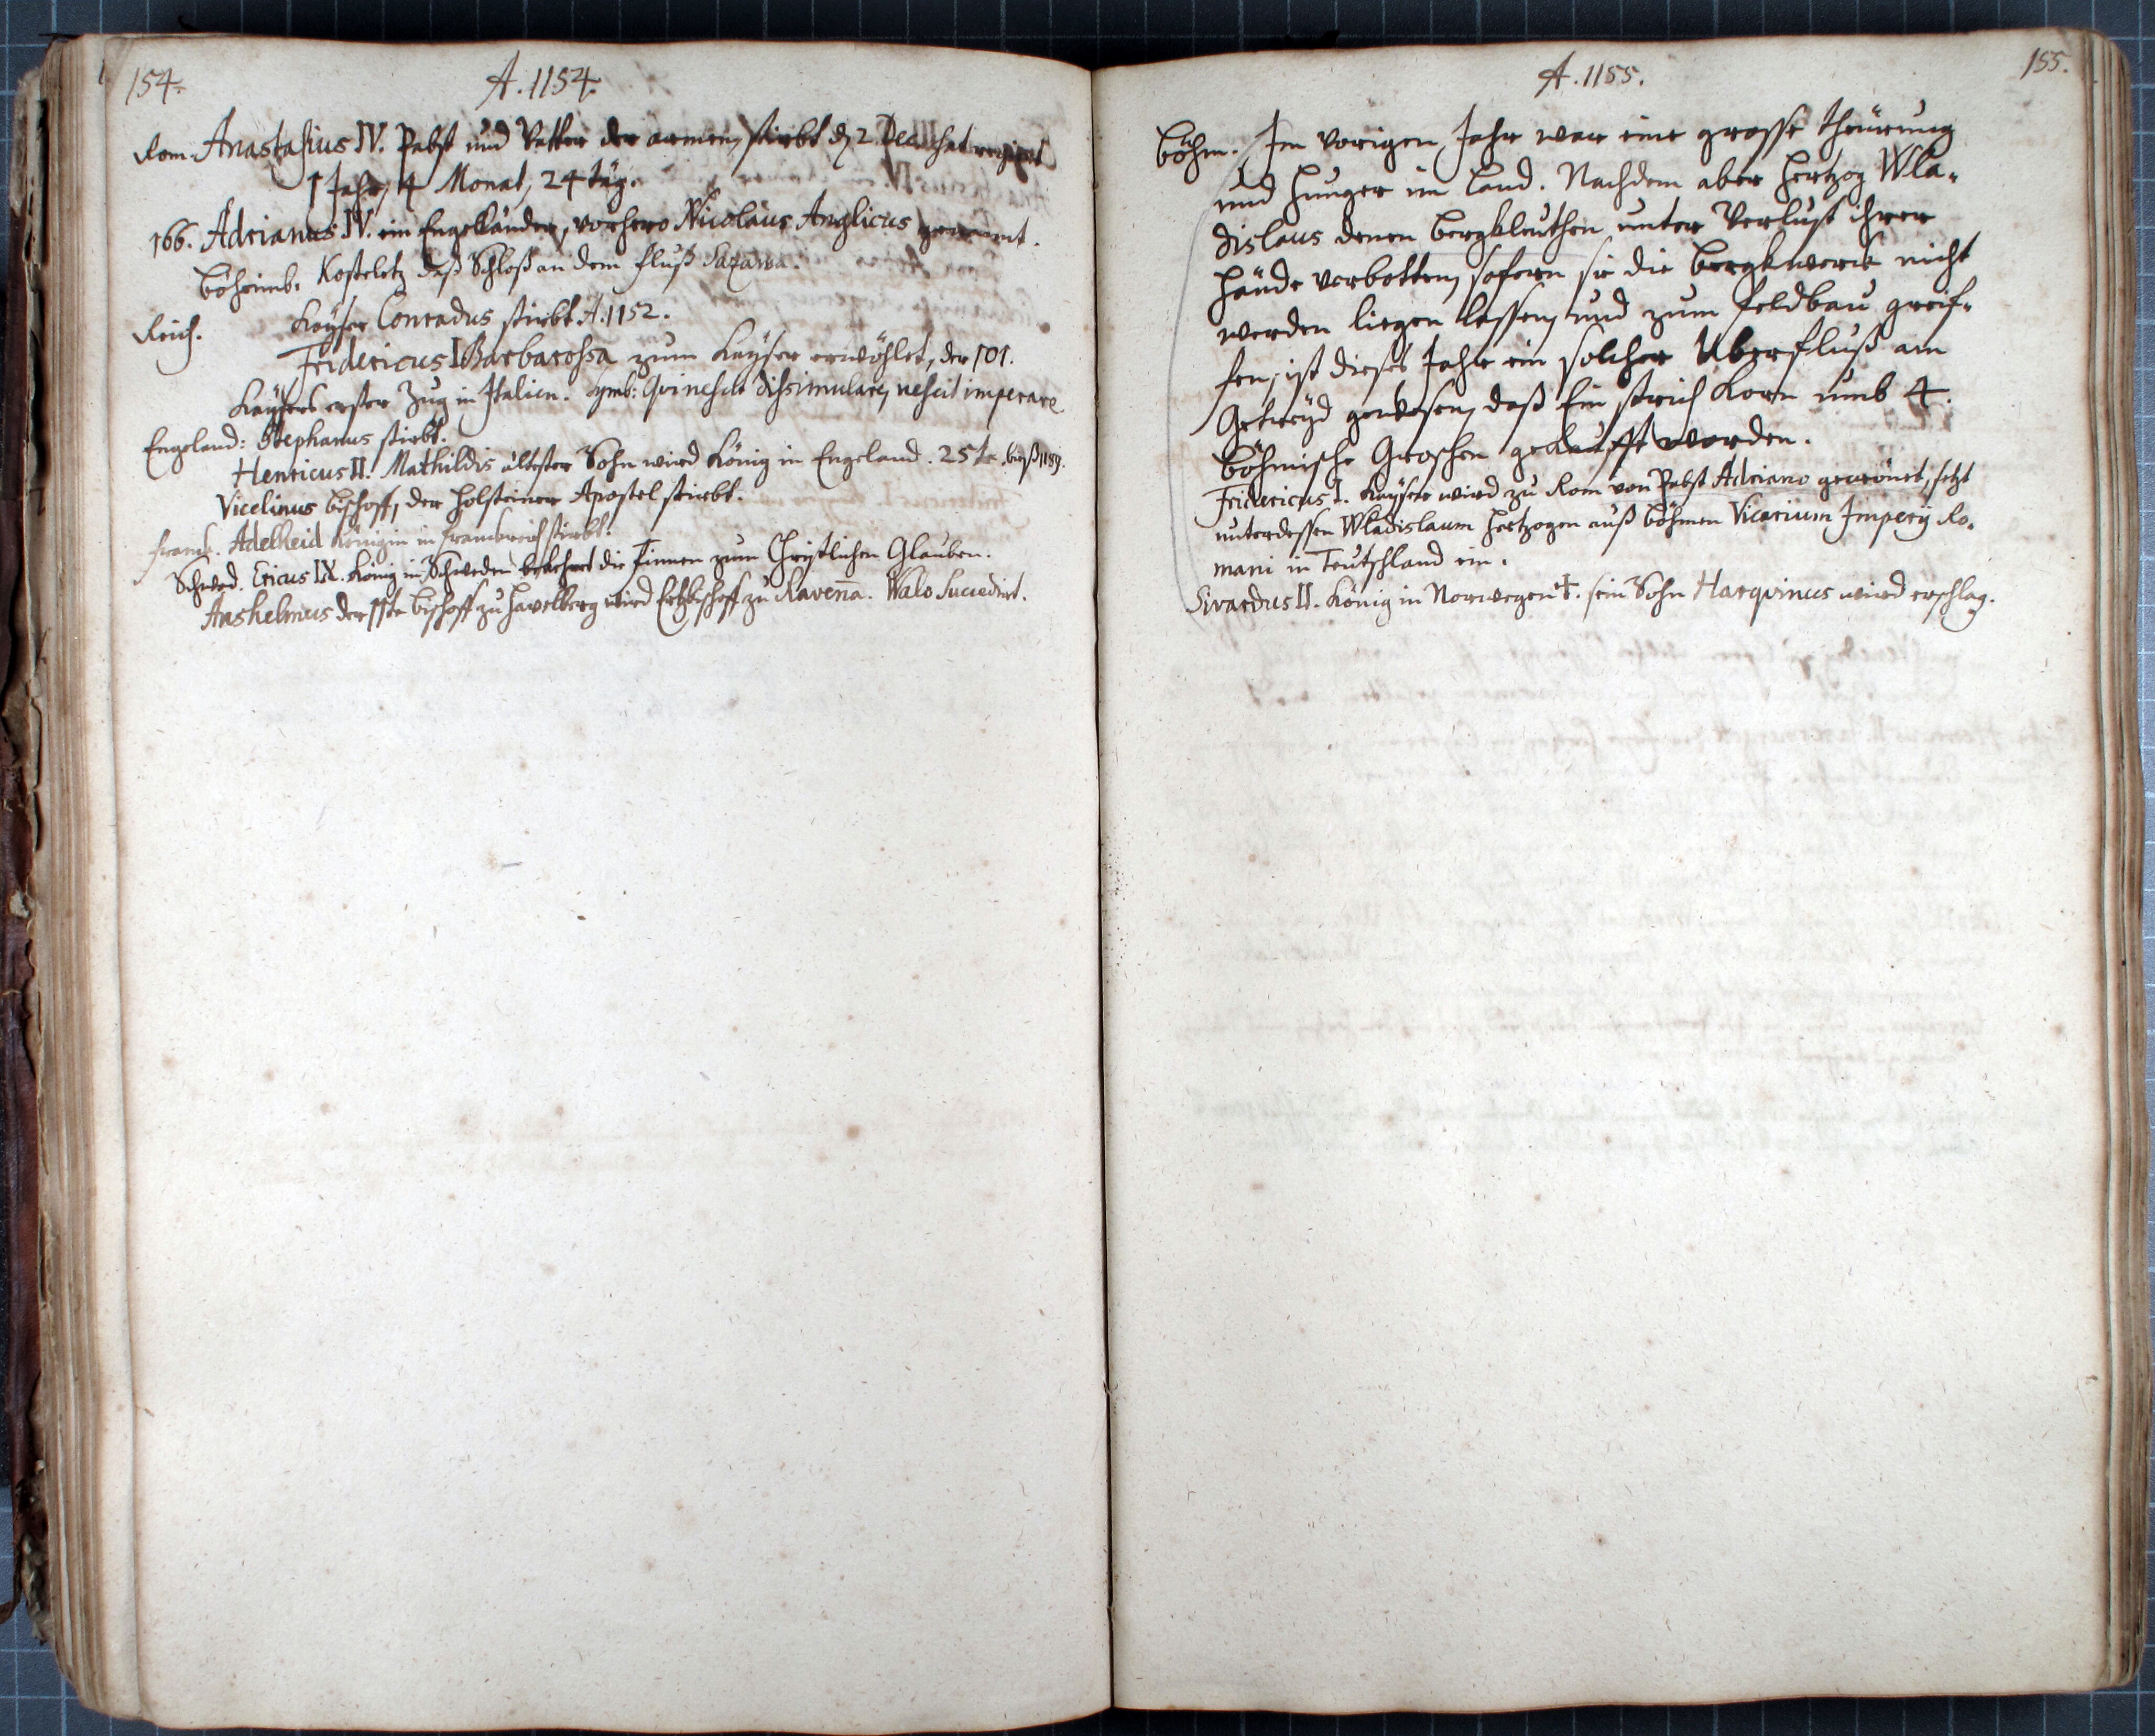 154.
A. 1154.
Rom. Anastasius IV. Pabst und Vatter der armen, stirbt d. 2. Dec. hat regirt
1 Jahr, 4 Monat, 24 täg.
166. Adrianus IV. ein Engelländer, vorhero Nicolaus Anglicus genennt.
Böheimb. Kosteletz daß Schloß an dem fluß Sazawa.
Reich. Kayser Conradus stirbt A. 1152.
Fridericus I Barbarossa zum Kayser erwöhlet, der 101.
Kaysers erster Zug in Italien. Symb: Qvi nescit dissimulare, nescit imperare
Engeland: Stephanus stirbt.
Henricus II. Mathildis ältester Sohn wird König in Engeland. 25te. biß 1189.
Vicelinus Bischoff, der Holsteiner Apostel stirbt.
Franck. Adelheid Königin in Franckreich stirbt.
Schwed. Ericus IX. König in Schweden bekehret die Finnen zum Christlichen Glauben.
Anshelmus der 11te Bischoff zu Havelberg wird Ertzbischoff zu Ravena. Walo Succedirt.
155.
A. 1155.
Böhm. Im vorigen Jahr war eine grosse theürung
und hunger im Land. Nachdem aber Hertzog Wla-
dislaus denen Bergkleuthen unter Verlust ihrer
Hände verbotten, sofern sie die Bergkwerck nicht
werden liegen lassen, und zum feldbau greif-
fen, ist dieses Jahr ein solcher Uberfluß am
Getreyd gewesen, daß Ein strich Korn umb 4.
Böhmische Groschen gekaufft worden.
Fridericus I. Kayser wird zu Rom von Pabst Adriano gecrönet, setzt
unterdessen Wladislaum Hertzogen auß Böhmen Vicarium Imperij Ro-
mani in Teutschland ein.
Sivardus II. König in Norwegen †. sein Sohn Harqvinus wird erschlag.